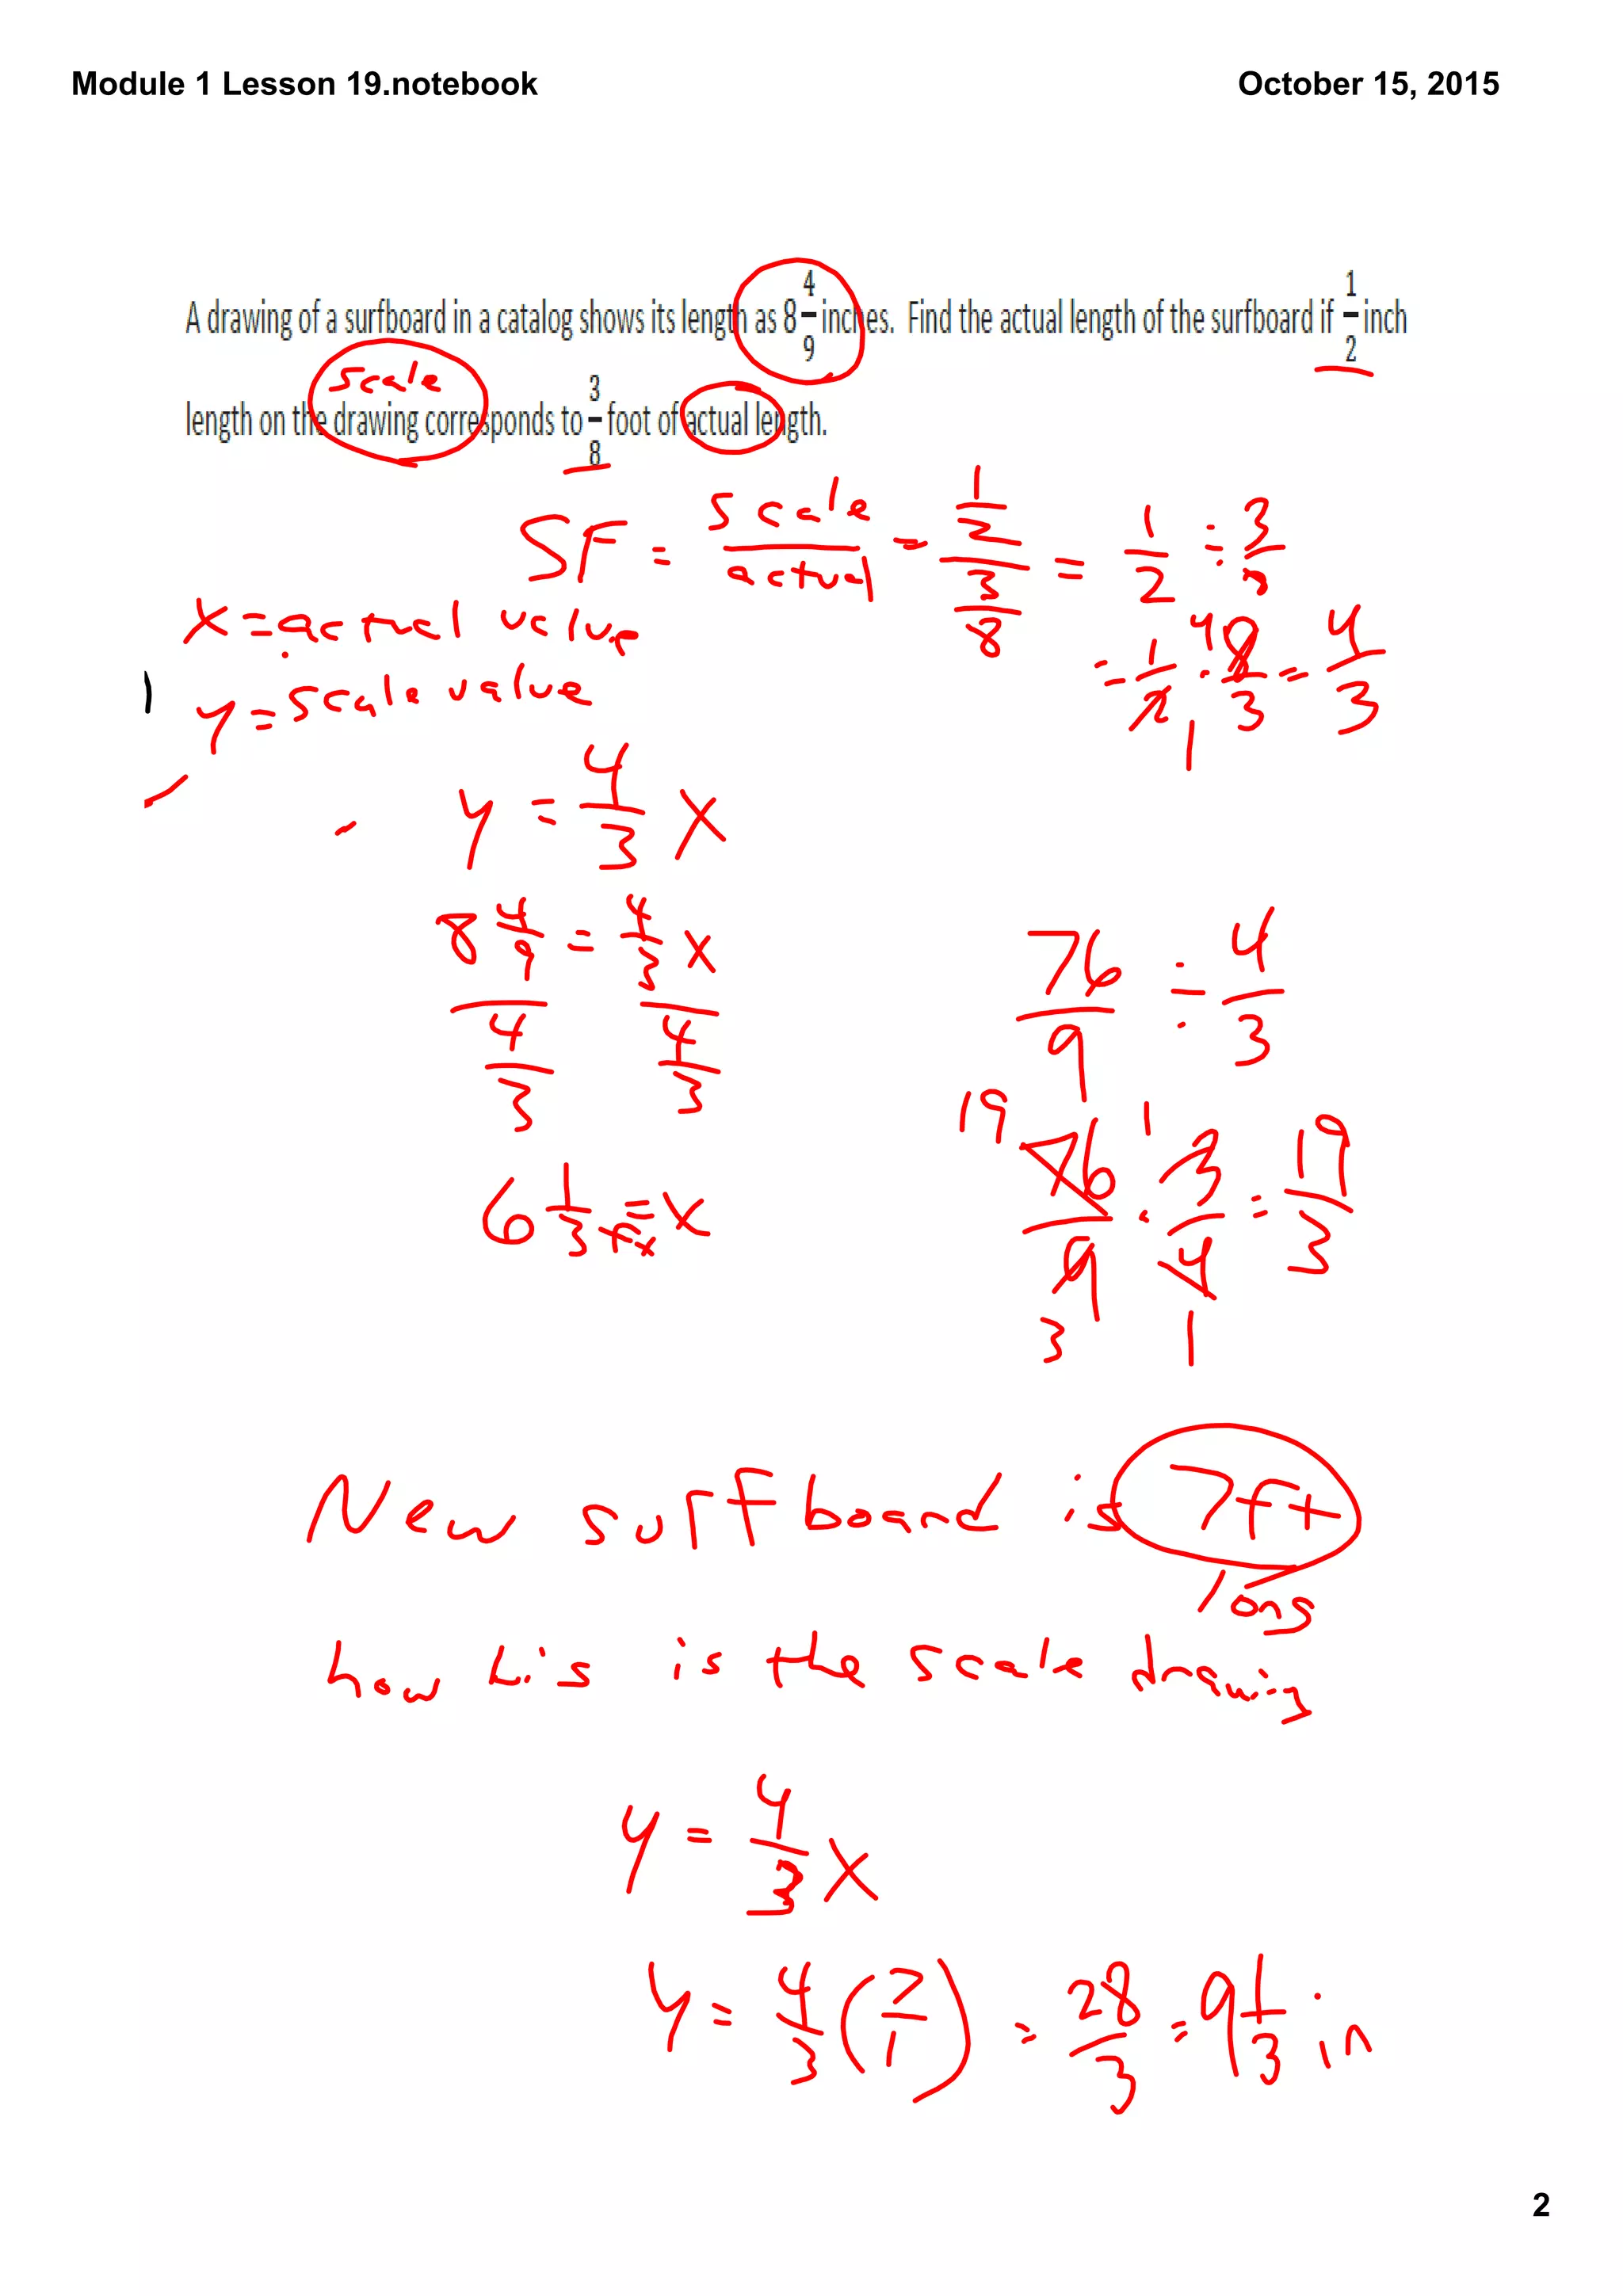 Module 1 Lesson 19.notebook
October 15, 2015
A drawing of a surfboard in a catalog shows its length as 8 4/9 inches. Find the actual length of the surfboard if 1/2 inch
length on the drawing corresponds to 3/8 foot of actual length.
scale
SF = scale/actual = (1/2)/(3/8) = 1/2 ÷ 3/8
= 1/2 · 8/3 = 4/3
4
1
x = actual value
y = scale value
y = 4/3 x
8 4/9 = 4/3 x
4/3 4/3
6 1/3 ft = x
76/9 ÷ 4/3
19 1
76/9 · 3/4 = 19/3
3 1
New surfboard is 7ft
long
how his is the scale drawing
y = 4/3 x
y = 4/3 (7/1) = 28/3 = 9 1/3 in
2